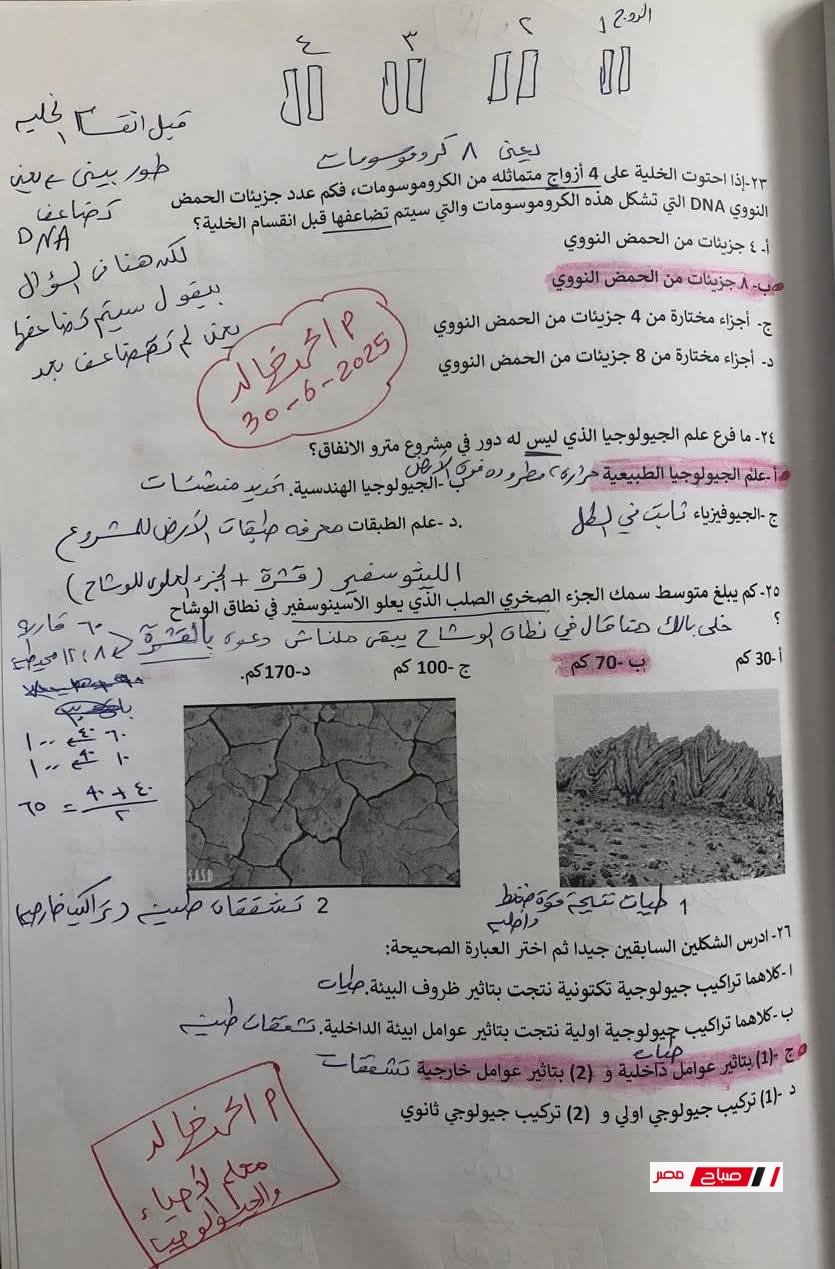 الزوج ١ ٢ ٣ ٤
يعنى ٨ كروموسومات
قبل انقسام الخليه
طور بينى يعنى
تضاعف
DNA
لكن هنا فى السؤال
بيقول سيتم تضاعفها
يعنى لم تتضاعف بعد
٢٣-إذا احتوت الخلية على 4 أزواج متماثله من الكروموسومات، فكم عدد جزيئات الحمض
النووي DNA التي تشكل هذه الكروموسومات والتي سيتم تضاعفها قبل انقسام الخلية؟
أ-٤ جزيئات من الحمض النووي
ب-٨ جزيئات من الحمض النووي
ج- أجزاء مختارة من 4 جزيئات من الحمض النووي
د- أجزاء مختارة من 8 جزيئات من الحمض النووي
م احمد خالد
30-6-2025
٢٤- ما فرع علم الجيولوجيا الذي ليس له دور في مشروع مترو الانفاق؟
أ-علم الجيولوجيا الطبيعية حرارة، مطر وده فوق الأرض ب-الجيولوجيا الهندسية. تحديد منشئات
ج-الجيوفيزياء ثابت في الكل د-علم الطبقات. معرفه طبقات الأرض للمشروع
الليثوسفير (قشرة + الجزء العلوى للوشاح)
٢٥-كم يبلغ متوسط سمك الجزء الصخري الصلب الذي يعلو الأسينوسفير في نطاق الوشاح
؟
خلى بالك هنا قال في نطاق الوشاح يبقى ملناش دعوه بالقشرة
٦٠ قاريه
٨ : ١٢ محيطيه
أ-30 كم ب-70 كم ج-100 كم د-170 كم.
٦٠ ٤٠ ١٠٠
١٠ ٩٠ ١٠٠
٤٠ + ٩٠ / ٢ = ٦٥
1 طيات نتيجة قوة ضغط
داخليه
2 تشققات طينيه (تراكيب خارجيه)
٢٦-ادرس الشكلين السابقين جيدا ثم اختر العبارة الصحيحة:
ا-كلاهما تراكيب جيولوجية تكتونية نتجت بتاثير ظروف البيئة. طيات
ب-كلاهما تراكيب جيولوجية اولية نتجت بتاثير عوامل ابيئة الداخلية. تشققات طينيه
طيات
ج-(1) بتاثير عوامل داخلية و (2) بتاثير عوامل خارجية تشققات
د-(1) تركيب جيولوجي اولي و (2) تركيب جيولوجي ثانوي
م احمد خالد
معلم الأحياء
والجيولوجيا
صباح مصر